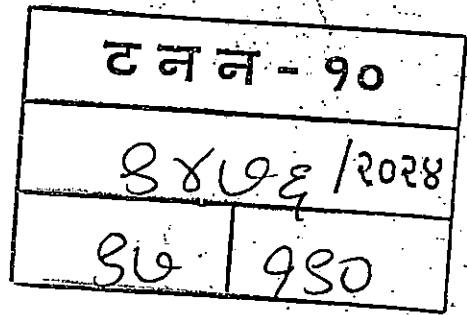 ट न न - १०
९४७६ /२०२४
९७ १९०